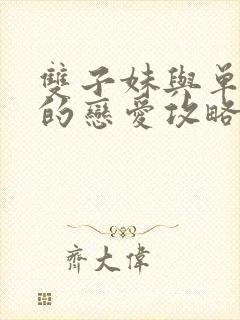 雙子妹與單
的戀愛攻略
齊大偉